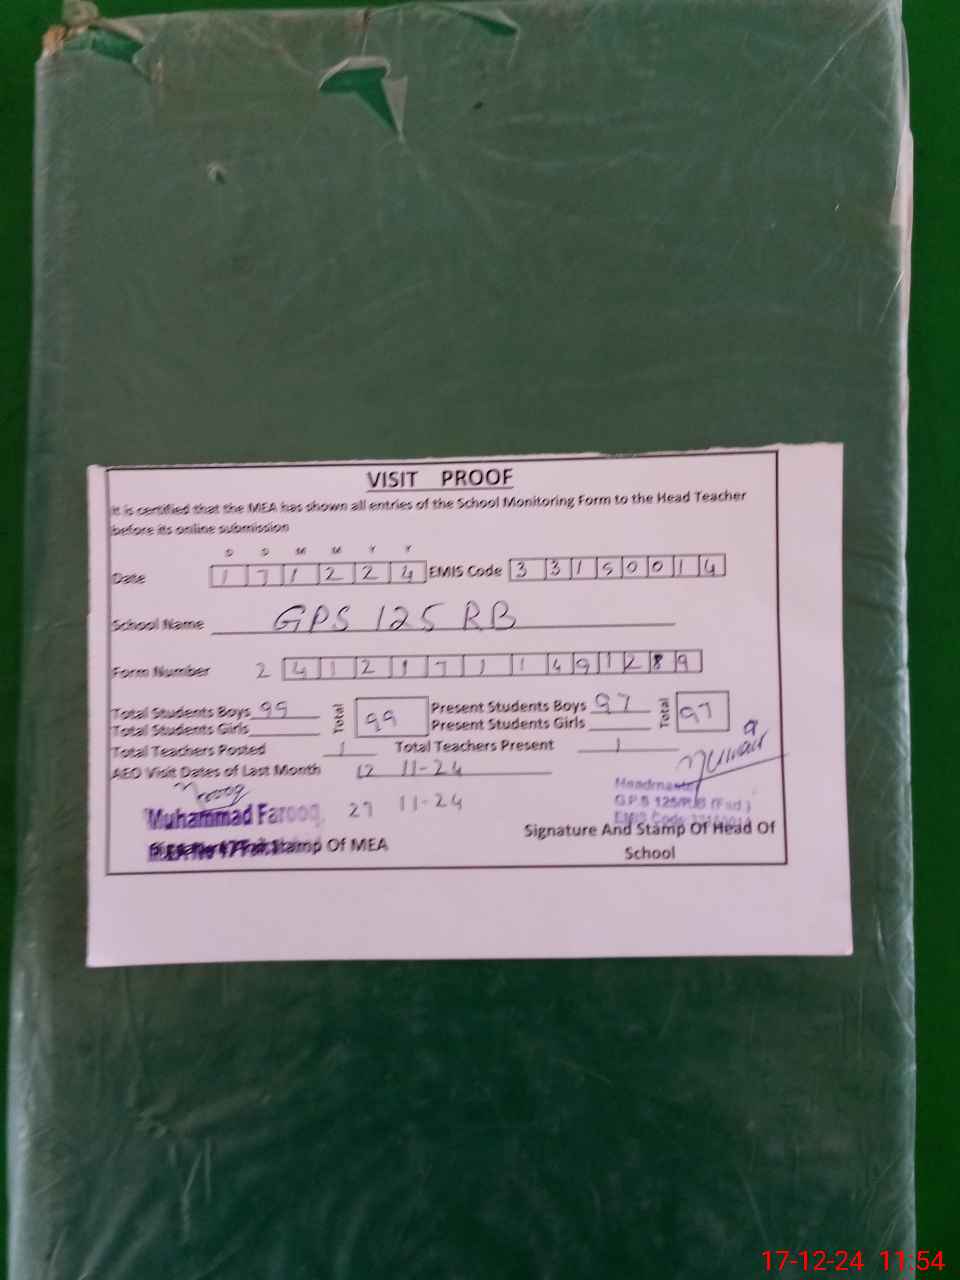 VISIT PROOF
It is certified that the MEA has shown all entries of the School Monitoring Form to the Head Teacher
before its online submission
D D M M Y Y
Date 1 7 1 2 2 4 EMIS Code 3 3 1 5 0 0 1 4
School Name GPS 125 RB
Form Number 2 4 1 2 1 7 1 1 4 9 1 2 8 9
Total Students Boys 99 Total 99 Present Students Boys 97 Total 97
Total Students Girls Present Students Girls
Total Teachers Posted 1 Total Teachers Present 1
AEO Visit Dates of Last Month 12 11-24
27 11-24
Farooq
Muhammad Farooq
Stamp Of MEA
Headmaster
G.P.S 125/R.B (Fsd)
EMIS Code
Signature And Stamp Of Head Of
School
17-12-24 11:54